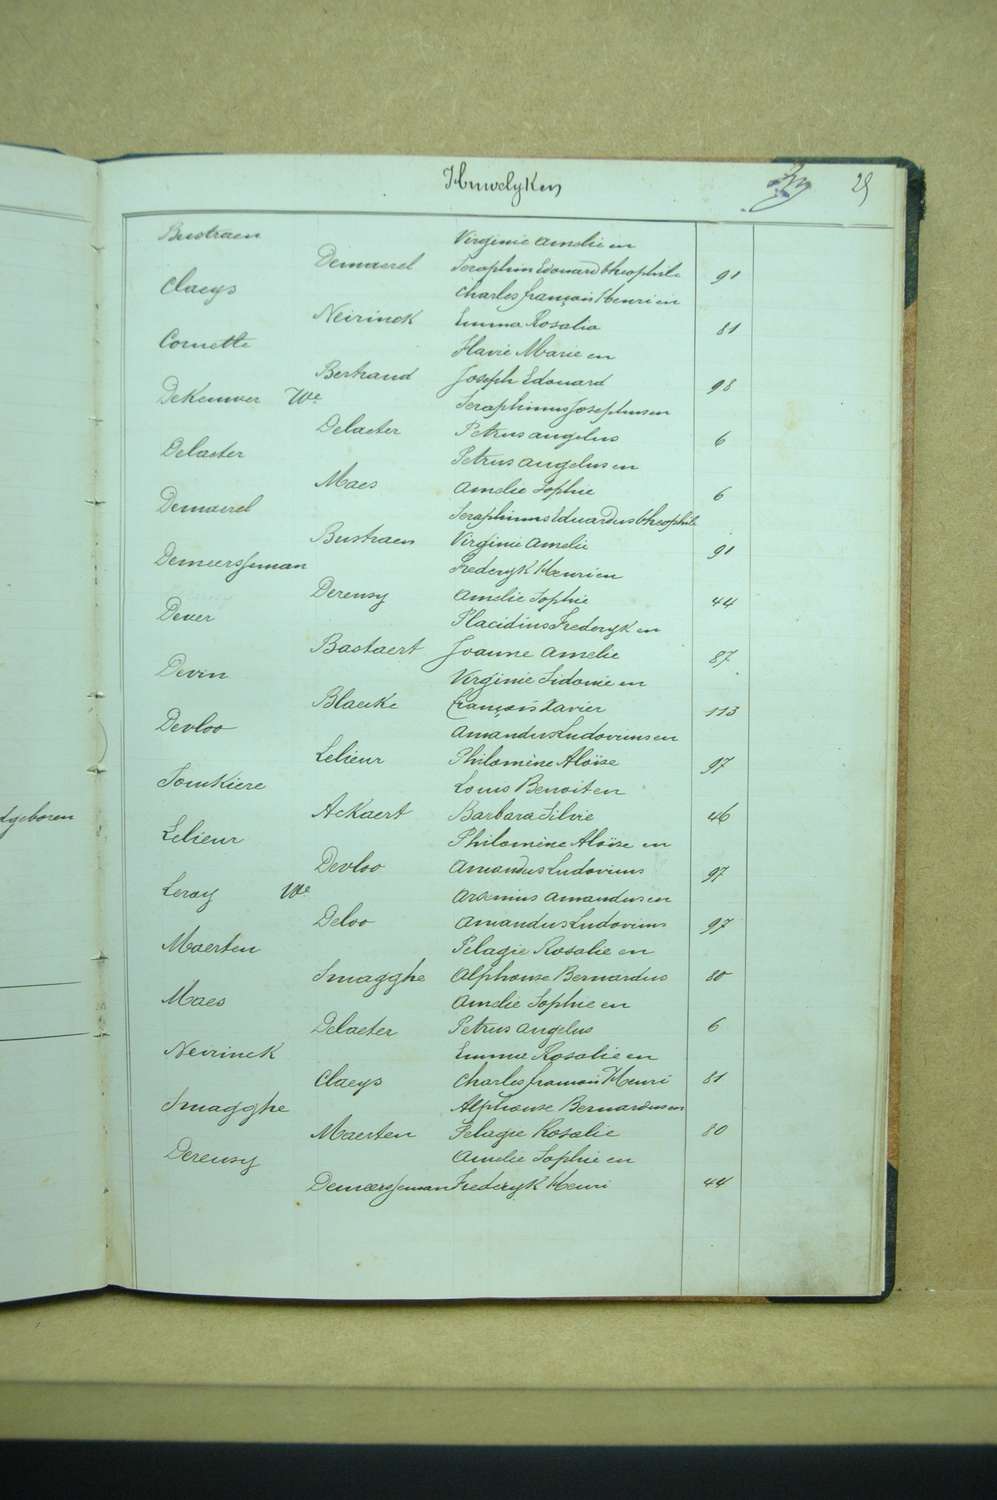 Huwelyken 29
Bustraen Virginie Amelie en
Demaerel Seraphin Edouard Theophile 91
Claeys Charles françois Henri en
Neirinck Emma Rosalia 81
Cornette Flavie Marie en
Bertrand Joseph Edouard 98
DeKeuwer We Seraphinus Josephus en
Delaeter Petrus angelus 6
Delaeter Petrus angelus en
Maes Amelie Sophie 6
Demaerel Seraphinus Eduardus Theophile
Bustraen Virginie Amelie 91
Demeersseman Frederyk Henri en
Dereusy Amelie Sophie 44
Dever Placidius Frederyk en
Bastaert Joanne Amelie 87
Devin Virginie Sidonie en
Blaeke françois Xavier 113
Devloo Amandus Ludovicus en
Lelieur Philomène Aloïse 97
Jonckiere Louis Benoit en
Ackaert Barbara Silvie 46
Lelieur Philomène Aloïse en
Devloo Amandus Ludovicus 97
Leroy We Arsenius Amandus en
Deloo Amandus Ludovicus 97
Maerten Pelagie Rosalie en
Smagghe Alphonse Bernardus 80
Maes Amelie Sophie en
Delaeter Petrus Angelus 6
Neirinck Emma Rosalie en
Claeys Charles francois Henri 81
Smagghe Alphonse Bernardus en
Maerten Pelagie Rosalie 80
Dereusy Amelie Sophie en
Demeersseman Frederyk Henri 44
dgeboren